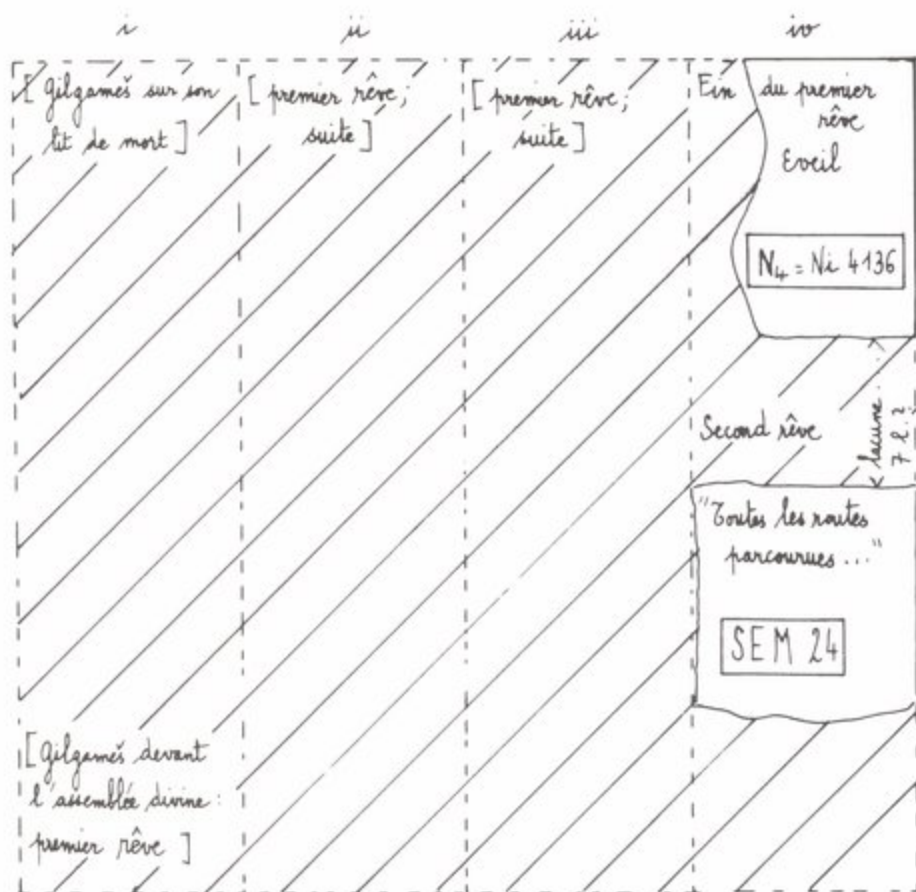 i ii iii iv
[ Gilgameš sur son
lit de mort ]
[ Gilgameš devant
l'assemblée divine :
premier rêve ]
[ premier rêve ;
suite ]
[ premier rêve ;
suite ]
Fin du premier
rêve
Eveil
N₄ = Ni 4136
lacune
7 l. ?
Second rêve
"Toutes les routes
parcourues ..."
SEM 24